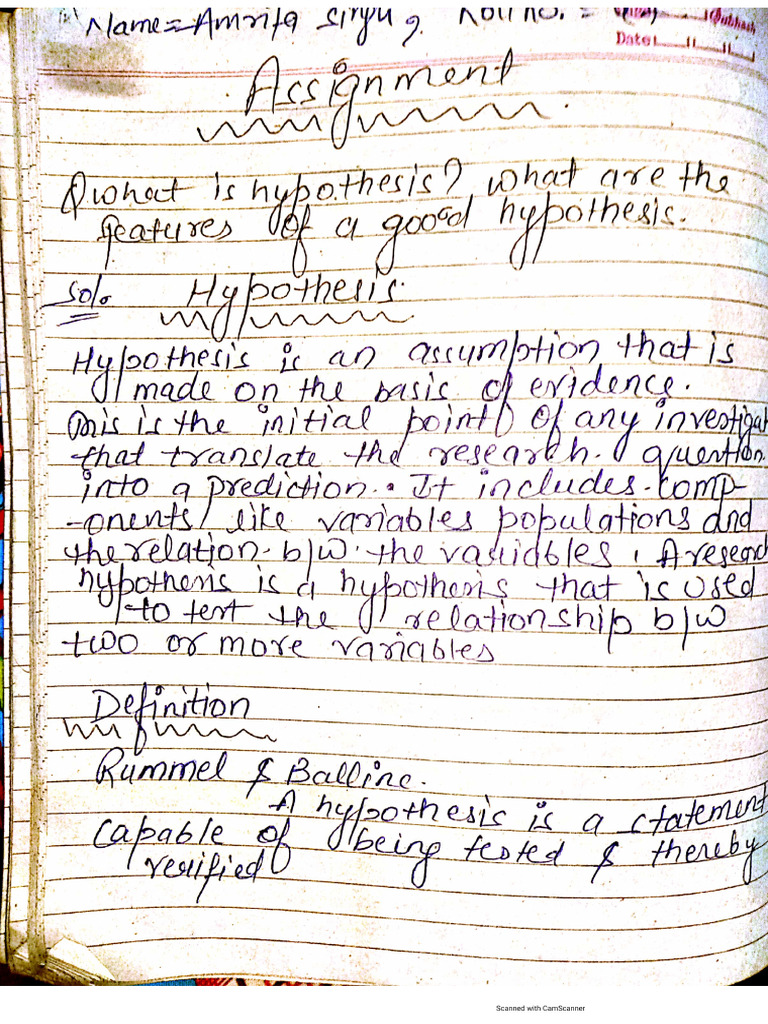 Name = Amrita Roll no. =
Date:
Assignment
Q what is hypothesis? What are the
features of a goood hypothesis.
Sol. Hypothesis.
Hypothesis is an assumption that is
made on the basis of evidence.
This is the initial point of any investigat
that translate the research question
into a prediction. It includes comp-
-onents like variables populations and
the relation b/w the variables. A research
hypothesis is a hypothesis that is used
to test the relationship b/w
two or more variables
Definition
Rummel & Balline.
A hypothesis is a statement
capable of being tested & thereby
verified
Scanned with CamScanner